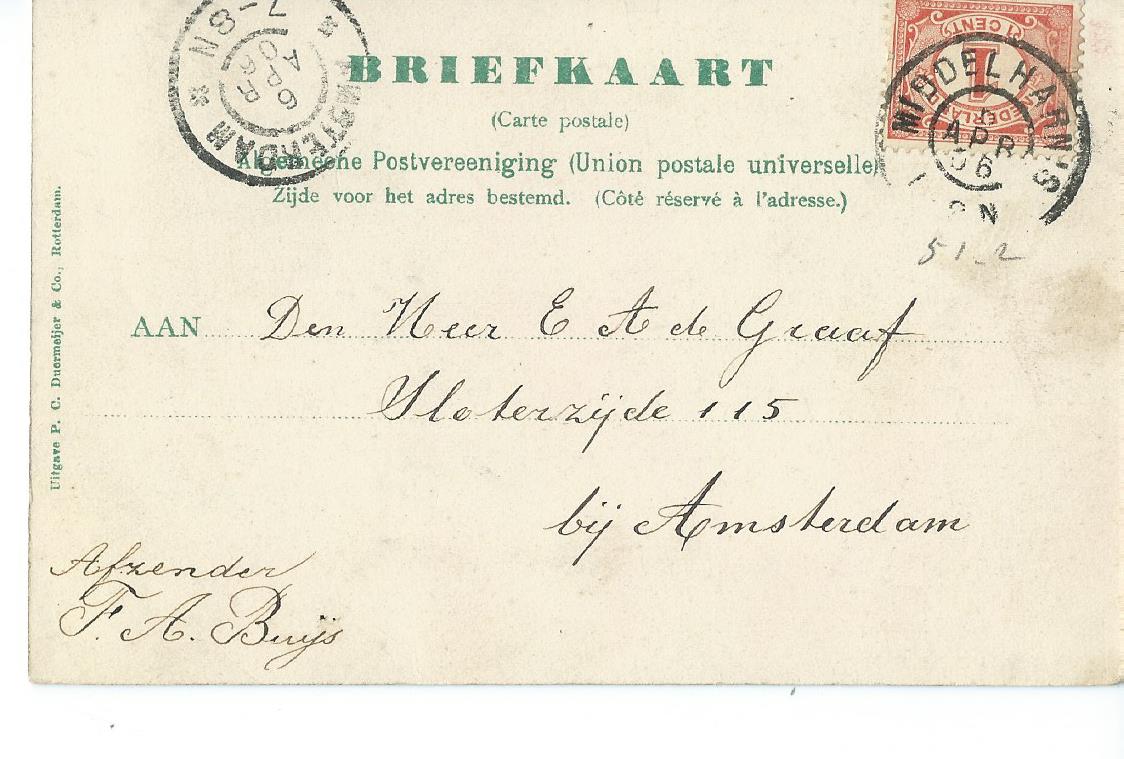 BRIEFKAART
(Carte postale)
Algemeene Postvereeniging (Union postale universelle)
Zijde voor het adres bestemd. (Côté réservé à l'adresse.)
AMSTERDAM
7-8N
6 APR 06
1 CENT
MIDDELHARNIS
APR
06
N
51-2
AAN Den Heer E A de Graaf
Sloterzijde 115
bij Amsterdam
Afzender
F. A. Buijs
Uitgave P. C. Duermeijer & Co., Rotterdam.